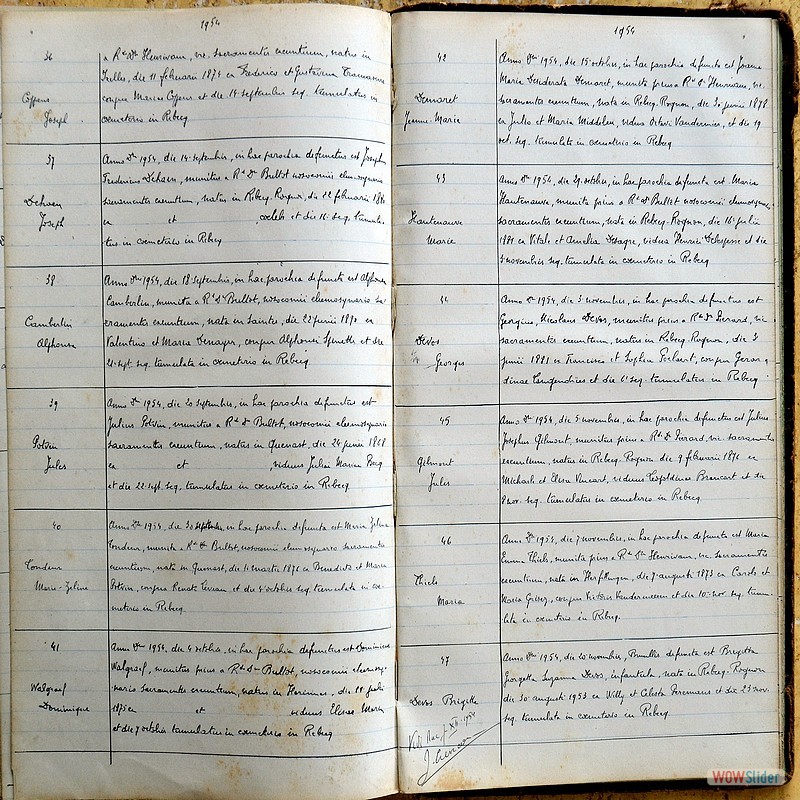 1954
36
Coppens
Joseph
a Rdo Dno Henrivaux, vic. sacramentis exeuntium, natus in
die 11 februarii 1874 ex Frederico et Gustavina
conjux Maria Coppens et die 14 septembris seq. tumulatus in
cœmeterio in Rebecq
37
Dehoen
Joseph
Anno Dni 1954, die 14 septembris, in hac parochia defunctus est Joseph
Fredericus Dehoen, munitus a Rdo Do Bullot nosocomii elemosynario
sacramentis exeuntium, natus in Rebecq-Rognon, die 22 februarii
ex et cœlebs et die 16 seq. tumula-
tus in cœmeterio in Rebecq
38
Camberlin
Alphonse
Anno Dni 1954, die 18 septembris, in hac parochia defuncta est Alphonsa
Camberlin, munita a Rdo Do Bullot, nosocomii elemosynario sa-
cramentis exeuntium, nata in Saintes, die 22 junii 1870 ex
Valentino et Maria Denayer, conjux Alphonsi et die
21 sept. seq. tumulata in cœmeterio in Rebecq
39
Potvin
Jules
Anno Dni 1954, die 20 septembris, in hac parochia defunctus est
Julius Potvin, munitus a Rdo Do Bullot, nosocomii elemosynario
sacramentis exeuntium, natus in Quenast, die 24 junii 1868
ex et viduus Julia Maria Becq
et die 22 sept. seq. tumulatus in cœmeterio in Rebecq
40
Tondeur
Marie-Zéline
Anno Dni 1954, die 30 septembris, in hac parochia defuncta est Maria Zelina
Tondeur, munita a Rdo Do Bullot, nosocomii elemosynario sacramentis
exeuntium, nata in Quenast, die 11 martii 1876 ex Benedicto et Maria
Potvin, conjux Renati et die 4 octobris seq. tumulata in cœ-
meterio in Rebecq
41
Walgraef
Dominique
Anno Dni 1954, die 4 octobris, in hac parochia defunctus est Dominicus
Walgraef, munitus prius a Rdo Dno Bullot, nosocomii elemosy-
nario sacramentis exeuntium, natus in Herinnes, die 18 julii
1875 ex et viduus Elisae Maria
et die 7 octobris tumulatus in cœmeterio in Rebecq
1954
42
Demaret
Jeanne-Marie
Anno Dni 1954, die 15 octobris, in hac parochia defuncta est Joanna
Maria Desiderata Demaret, munita prius a Rdo Do Henrivaux, vic.
sacramentis exeuntium, nata in Rebecq-Rognon, die 30 junii 1878
ex Julio et Maria Middelen, vidua Octavi Vandermies, et die 19
oct. seq. tumulata in cœmeterio in Rebecq
43
Hautenauve
Marie
Anno Dni 1954, die 29 octobris, in hac parochia defuncta est Maria
Hautenauve, munita prius a Rdo Do Bullot nosocomii elemosynario,
sacramentis exeuntium, nata in Rebecq-Rognon, die 16 julii
1881 ex Vitali et Amelia Desagre, vidua Henrici Delespesse et die
3 novembris seq. tumulata in cœmeterio in Rebecq
44
Devos
Georges
Anno Dni 1954, die 3 novembris, in hac parochia defunctus est
Georgius, Nicolaus Devos, munitus prius a Rdo Do Pierard, vic.
sacramentis exeuntium, natus in Rebecq-Rognon, die 3
junii 1881 ex Francisco et Sophia conjux Gerar-
dinae Langendries et die 6 seq. tumulatus in Rebecq
45
Gilmont
Jules
Anno Dni 1954, die 5 novembris, in hac parochia defunctus est Julius
Josephus Gilmont, munitus prius a Rdo Do Pierard, vic. sacramentis
exeuntium, natus in Rebecq-Rognon die 9 februarii 1876 ex
Michaele et Elisa Vincart, viduus Leopoldinae Brancart et die
8 nov. seq. tumulatus in cœmeterio in Rebecq
46
Thiels
Maria
Anno Dni 1954, die 7 novembris, in hac parochia defuncta est Maria
Emma Thiels, munita prius a Rdo Do Henrivaux, vic. sacramentis
exeuntium, nata in Herffelingen, die 7 augusti 1873 ex Carolo et
Maria conjux Victoris Vandermeeren et die 10 nov. seq. tumu-
lata in cœmeterio in Rebecq.
47
Devos Brigitte
Anno Dni 1954, die 20 novembris, Bruxellis defuncta est Brigitta
Georgetta Suzanna Devos, infantula, nata in Rebecq-Rognon
die 30 augusti 1953 ex Willy et Celesta Seremans et die 23 nov.
seq. tumulata in cœmeterio in Rebecq
WOWSlider